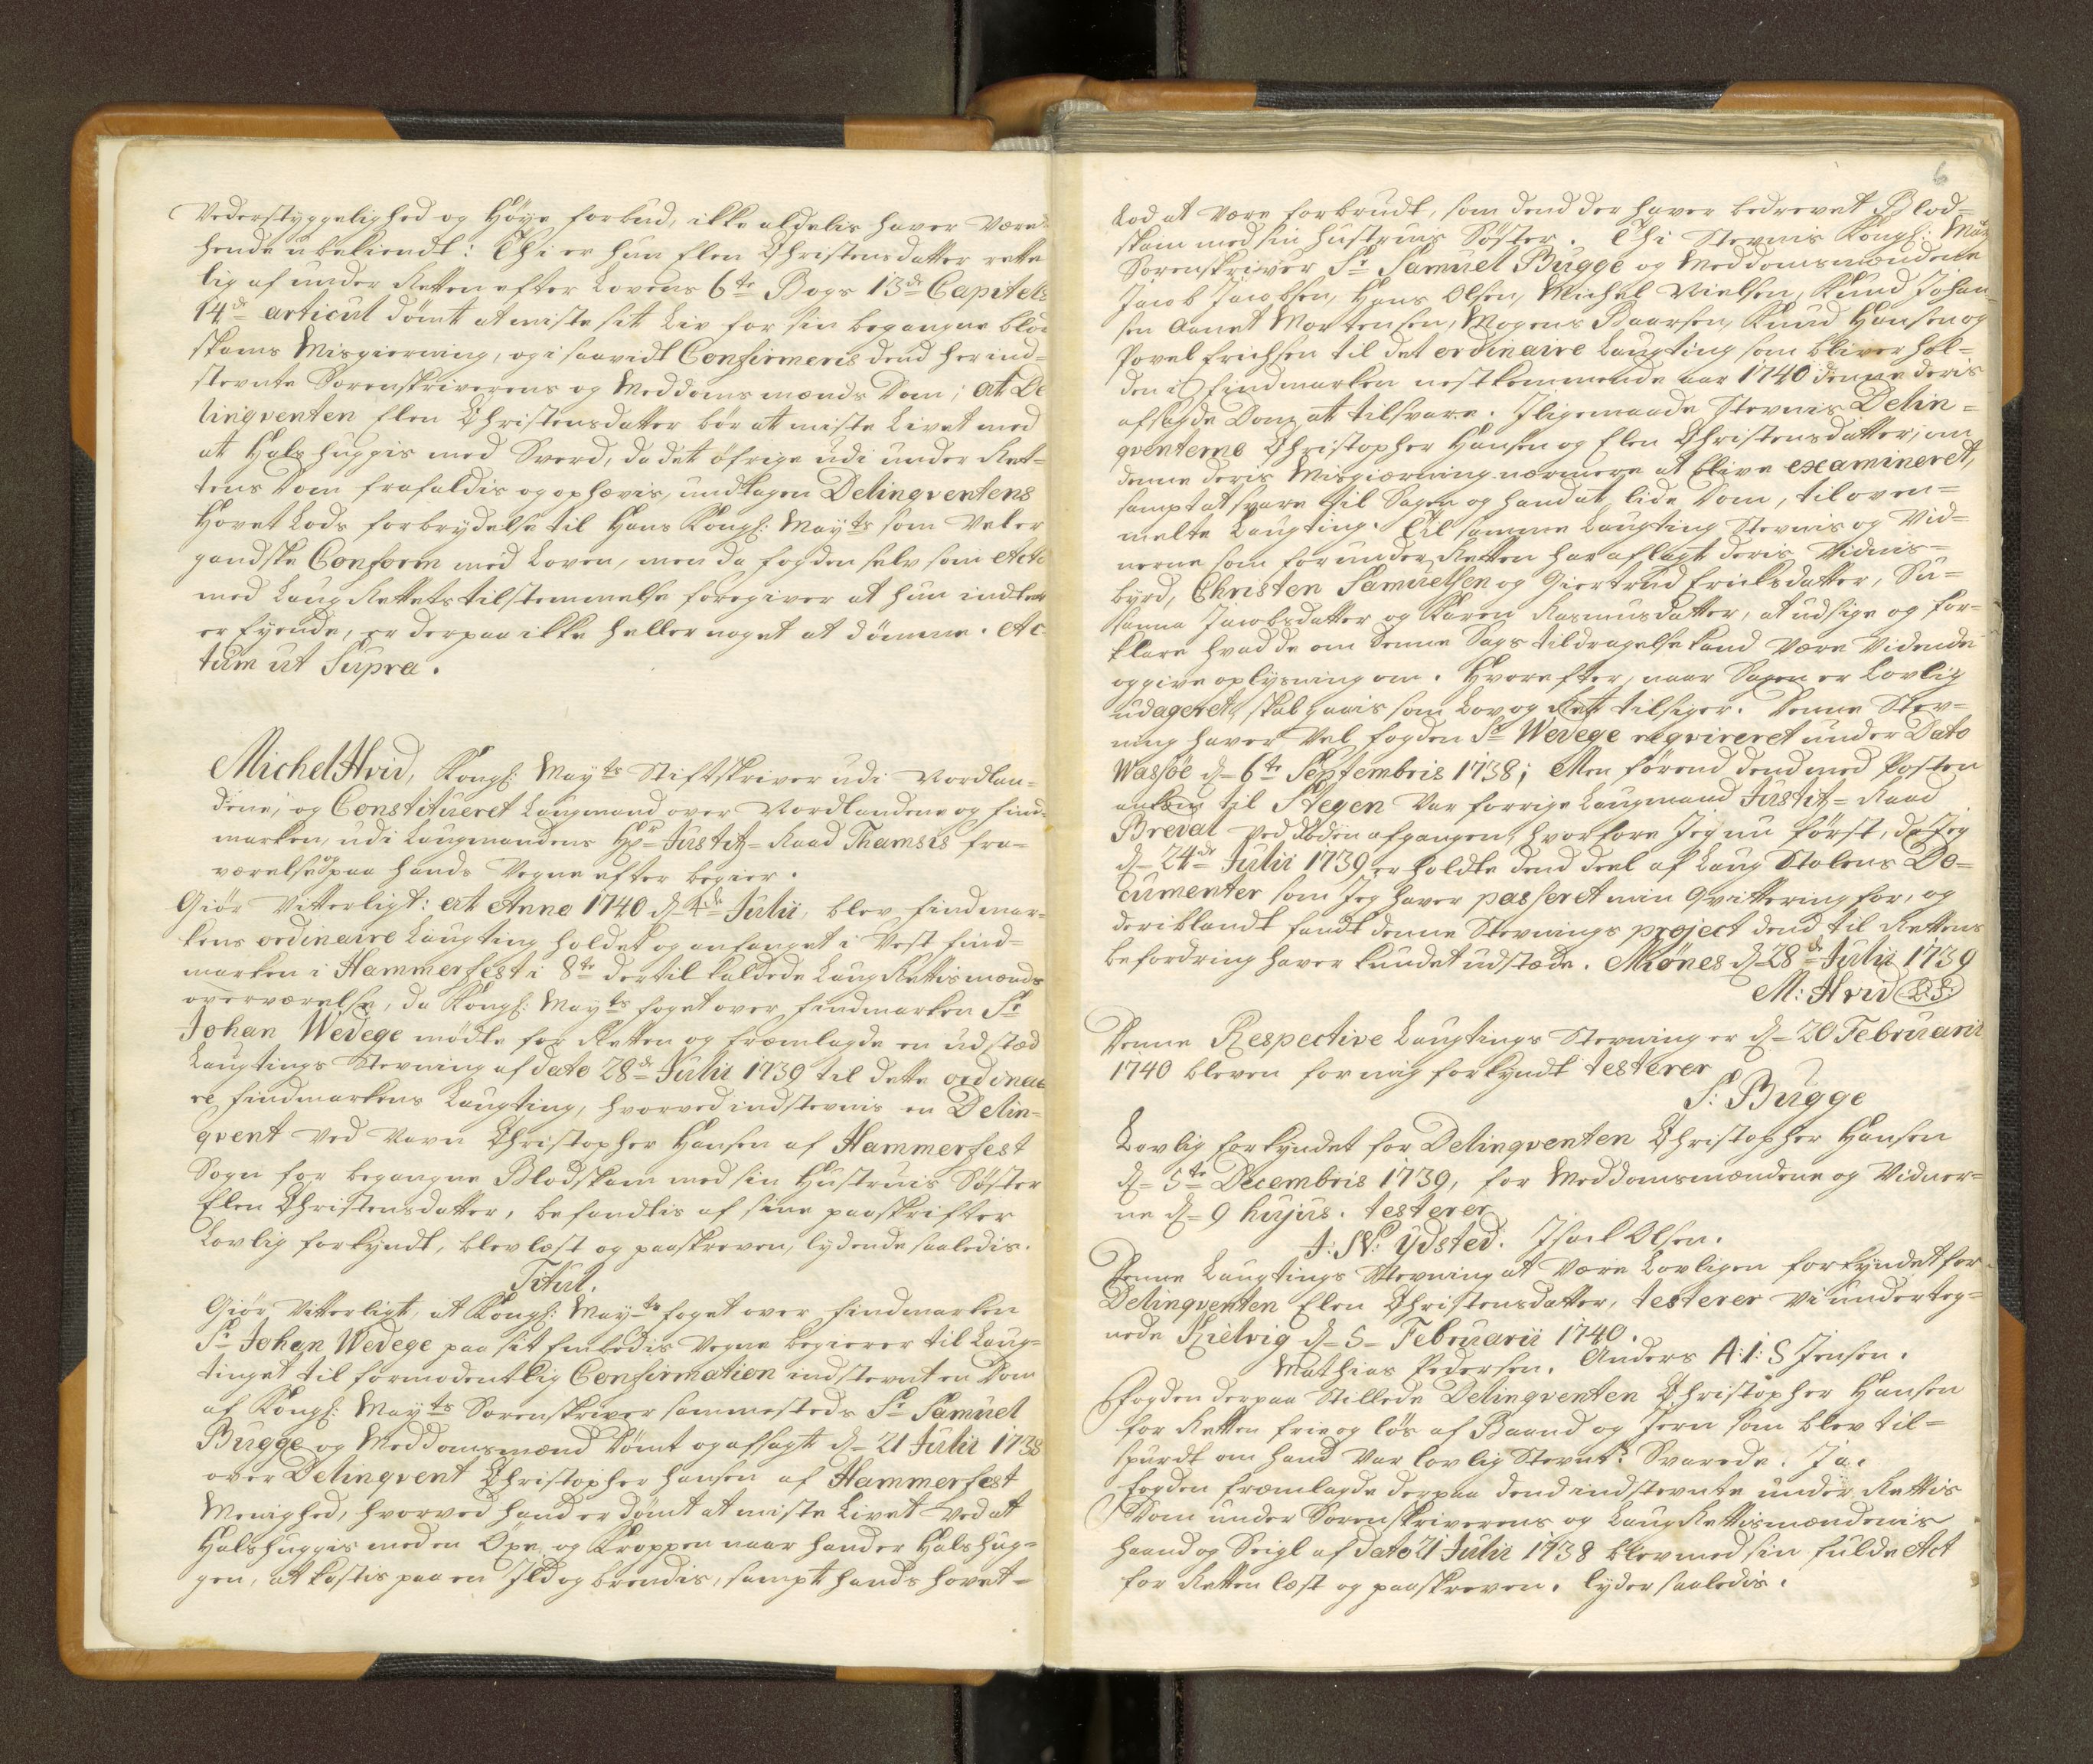 Vederstyggelighed og Höye forbud, ikke aldelis haver Væred
hende ubekiendt: Thi er hun Elen Christensdatter rette
lig af under Retten efter Lovens 6te Bogs 13de Capitels
14de articul dömt at miste sit Liv for sin begangne blod
skams Misgierning, og i saavidt Confirmeris dend her ind=
stevnte Sorenskriverens og Meddoms mænds Dom; at De
linqventen Elen Christensdatter bör at miste Livet med
at Halshuggis med Sverd, da det öfrige udi under Ret=
tens Dom frafaldis og ophævis, undtagen Delinqventens
Hovet Lods forbrydelse til Hans Kongl: Mayts som Vel er
gandske Conform med Loven, men da fogden selv som Acto
med Laug Rettets tilstemmelse foregiver at hun indtet
er Eyende, er derpaa ikke heller noget at dömme. Ac
tum ut Supra.
Michel Hvid, Kongl: Mayts Stiftskriver udi Nordlan=
dene, og Constitueret Laugmand over Nordlandene og Find=
marken, udi Laugmandens Hr Justitz=Raad Thamsis fra=
værelse og paa hands Vegne efter begier.
Giör Vitterligt: at Anno 1740 d 4de Julii, blev Findmar=
kens ordinaire Laugting holdet og anfanget i Vest Find=
marken i Hammerfest i 8te dertil kaldede Laug Rettis mænds
overværelse, da Kongl: Mayts foget over Findmarken Sr
Johan Wedege mödte for Retten og fremlagde en udstæd
Laugtings Stevning af dato 28de Julii 1739 til dette ordinai
re Findmarkens Laugting, hvorved indstevnis en Delin=
qvent Ved Navn Christopher Hansen af Hammerfest
Sogn for begangne Blodskam med sin Hustruis Söster
Elen Christensdatter, befandtis af sine paaskrifter
Lovlig forkyndt, blev læst og paaskreven, lydende saaledis.
Titul.
Giör Vitterligt, at Kongl: Mayts foget over Findmarken
Sr Johan Wedege paa sit Embedis Vegne begierer til Laug=
tinget til formodentlig Confirmation indstevnt en Dom
af Kongl: Mayts Sorenskriver sammesteds Sr Samuel
Bugge og Meddomsmænd dömt og afsagt d= 21 Julii 1738
over Delinqvent Christopher Hansen af Hammerfest
Menighed, hvorved hand er dömt at miste Livet Ved at
Halshuggis med en Öxe, og Kroppen naar hand er Halshug=
gen, at kastis paa en Ild og brendis, sampt hands hovet=
6
Lod at være forbrudt, som dend der haver bedrevet Blod=
skam med sin Hustruis Söster. Thi Stevnis Kongl: May
Sorenskriver Sr Samuel Bugge og Meddomsmændene
Jacob Jacobsen, Hans Olsen, Michel Nielsen, Knud Johan=
sen Aanet Mortensen, Mogens Baarsen, Knud Hansen og
Povel Erichsen til det ordinaire Laugting som bliver hol=
den i Findmarken nestkommende aar 1740 denne deris
afsagde Dom at tilsvare. Iligemaade Stevnis Delin=
qventerne Christopher Hansen og Elen Christensdatter, om
denne deris Misgierning nærmere at blive examineret,
sampt at svare til Sagen og hand at lide Dom, til oven=
melte Laugting. Til samme Laugting Stevnis og Vid=
nerne som for under Retten har aflagt deris Vidnis=
byrd, Christen Samuelsen og Giertrud Ericksdatter, Su=
sanna Jacobsdatter og Karen Rasmusdatter, at udsige og for=
klare hvad de om denne Sags tildragelse kand være Vidende
og give oplysning om. Hvorefter, naar Sagen er Lovlig
udageret, skal gaais som Lov og Ret tilsiger. Denne Stev=
ning haver Vel fogden Sr Wedege reqvireret under Dato
Wassöe d= 6te Septembris 1738; Men förend dend med Posten
ankom til Stegen Var forrige Laugmand Justitz=Raad
Breval ved döden afgangen, hvorfore Jeg nu först, da Jeg
d= 24de Julii 1739 erholdte dend deel af Laug Stolens Do=
cumenter som Jeg haver passeret min qvittering for, og
deriblandt fandt denne Stevnings project dend til Rettens
befordring haver kundet udstæde. Miönes d 28de Julii 1739
M: Hvid (L:S:)
Denne Respective Laugtings Stevning er d= 20 Februarii
1740 bleven for mig forkyndt testerer
S: Bugge
Lovlig forkyndet for Delinqventen Christopher Hansen
d= 5te Decembris 1739, for Meddomsmændene og Vidner=
ne d= 9 hujus. testerer
J: N: Ydsted. Isach Olsen.
Denne Laugtings Stevning at Være Lovligen forkyndet for
Delinqventen Elen Christensdatter, testerer Vi underteg=
nede Kielvig d= 5= Februarii 1740.
Mathias Pedersen. Anders A:I:S Jensen.
Fogden derpaa Stillede Delinqventen Christopher Hansen
for Retten frie og lös af Baand og Jern som blev til=
spurdt om hand Var lovlig Stevnt? Svarede. Ja.
Fogden fremlagde derpaa dend indstevnte under Rettis
Dom under Sorenskriverens og Laug Rettismændenis
haand og Seigl af Dato 21 Julii 1738 blev med sin fulde Act
for Retten læst og paaskreven. lyder saaledis.